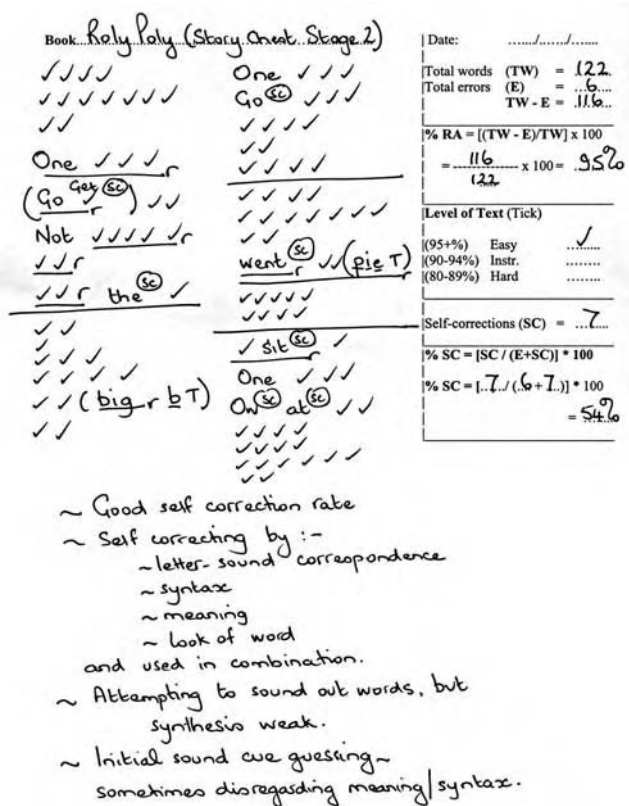 Book Roly Poly (Story Chest Stage 2)
✓✓✓✓
✓✓✓✓✓✓
✓✓
One ✓✓✓ r
(Go Get SC r) ✓✓
Not ✓✓✓✓✓ r
✓✓ r
✓✓ r the SC ✓
✓✓
✓✓
✓✓✓✓
✓✓✓✓
✓✓ (big r b T)
✓✓
One ✓✓✓
Go SC ✓✓✓
✓✓✓✓
✓✓
✓✓✓✓
✓✓✓✓
✓✓✓✓✓✓
✓✓
went SC r ✓✓ (pie T)
✓✓✓✓✓
✓✓✓✓
✓ sit SC r ✓
One ✓✓✓
On SC at SC ✓✓
✓✓✓✓
✓✓✓✓
✓✓✓✓✓✓
✓✓
Date: ....../....../......
Total words (TW) = 122
Total errors (E) = 6
TW - E = 116
% RA = [(TW - E)/TW] x 100
= 116 / 122 x 100 = 95%
Level of Text (Tick)
(95+%) Easy ✓
(90-94%) Instr. ........
(80-89%) Hard ........
Self-corrections (SC) = 7
% SC = [SC / (E+SC)] * 100
% SC = [..7../ (..6 + 7..)] * 100
= 54%
~ Good self correction rate
~ Self correcting by :-
~ letter-sound correspondence
~ syntax
~ meaning
~ look of word
and used in combination.
~ Attempting to sound out words, but
synthesis weak.
~ Initial sound cue guessing ~
sometimes disregarding meaning/syntax.